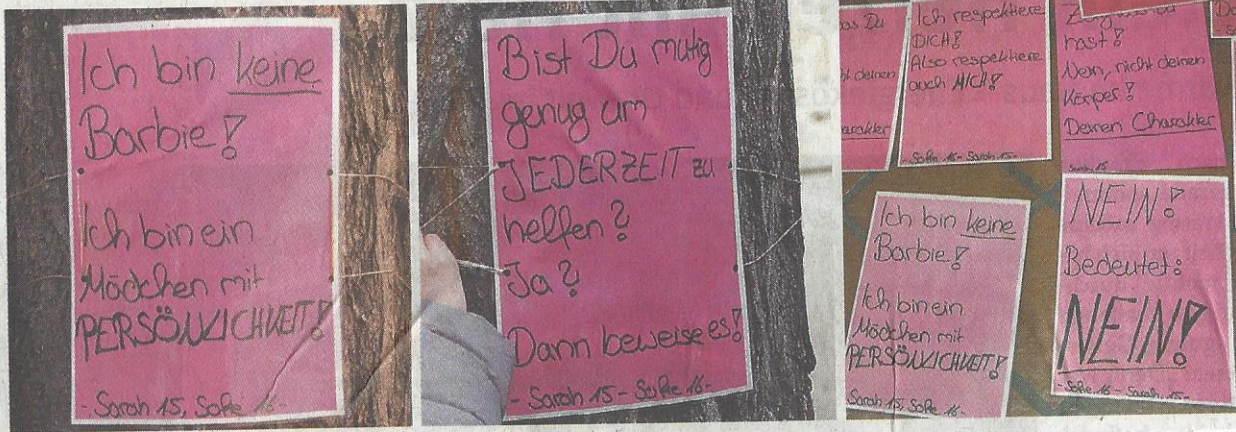 Ich bin keine
Barbie!
Ich bin ein
Mädchen mit
PERSÖNLICHKEIT!
- Sarah 15, Sofie 16 -
Bist Du mutig
genug um
JEDERZEIT zu
helfen?
Ja?
Dann beweise es!
- Sarah 15 - Sofie 16 -
Du
deinen
Ich respektiere
DICH!
Also respektiere
auch MICH!
- Sofie 16 - Sarah 15 -
hast!
Nein, nicht deinen
Körper!
Deinen Charakter
Sarah, 15
Ich bin keine
Barbie!
Ich bin ein
Mädchen mit
PERSÖNLICHKEIT!
Sarah 15, Sofie 16 -
NEIN!
Bedeutet:
NEIN!
- Sofie 16 - Sarah, 15 -